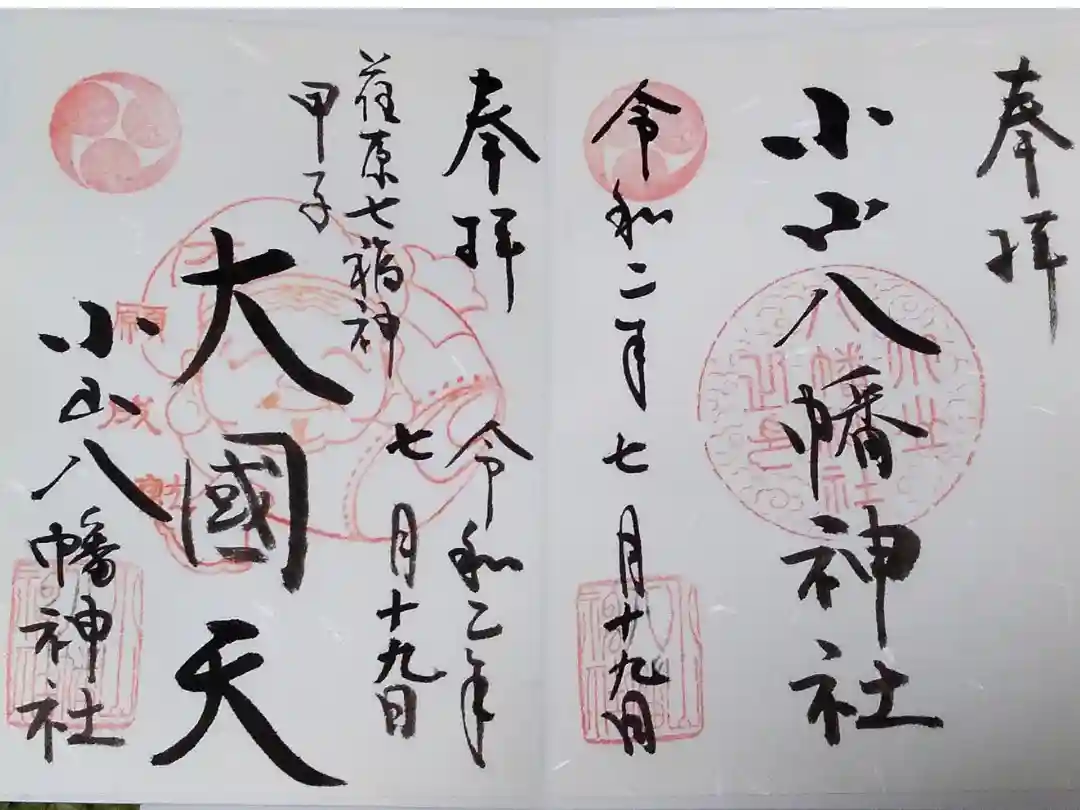 奉拝
小山八幡神社
令和二年七月十九日
奉拝
令和二年
七月十九日
荏原七福神
甲子
大國天
小山八幡神社
願
成
就